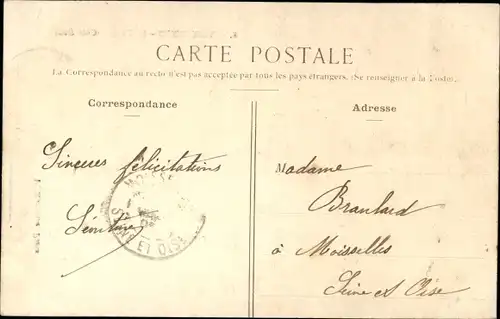 CARTE POSTALE
La Correspondance au recto n'est pas acceptée par tous les pays étrangers. (Se renseigner à la Poste).
Correspondance
Adresse
Sincères félicitations
Madame
Braulard
à Moisselles
Seine et Oise